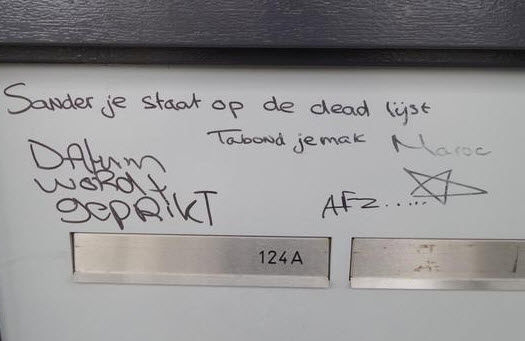 Sander je staat op de dead lijst
Tabond jemak Maroc
DAtum
wordt
geprikt
AFZ.....
124A